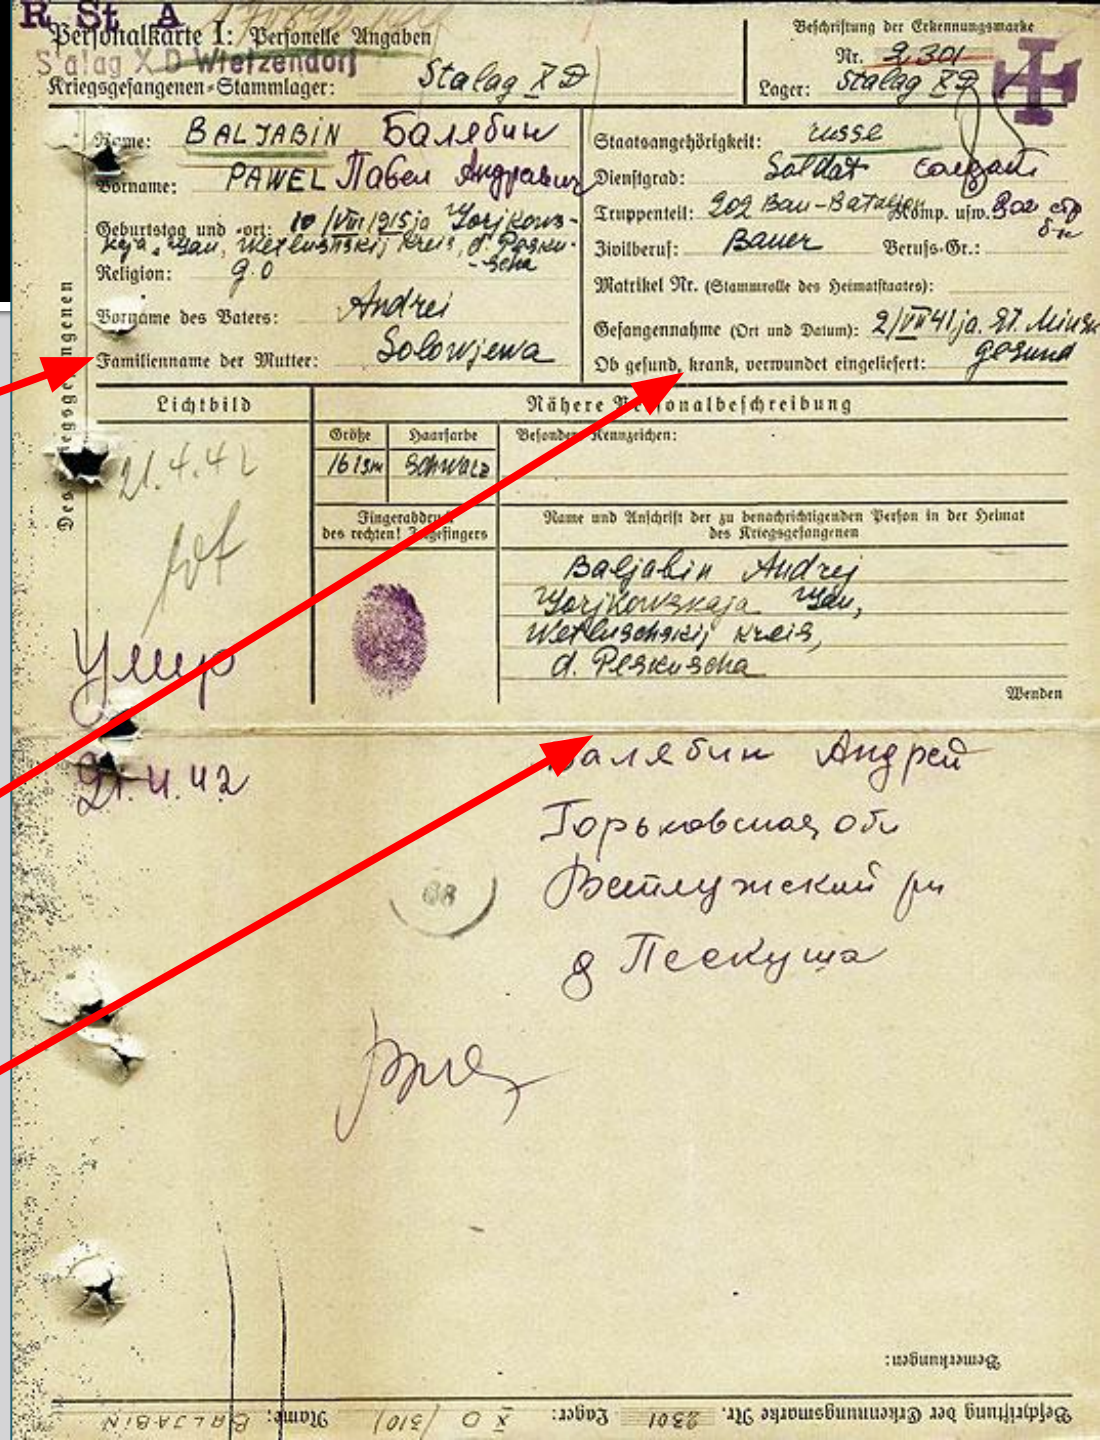 R St A
Personalkarte I: Personelle Angaben
Stalag X D Wietzendorf
Kriegsgefangenen-Stammlager: Stalag X D
Beschriftung der Erkennungsmarke
Nr. 2301
Lager: Stalag X D
Des Kriegsgefangenen
Name: BALJABIN Балябин
Vorname: PAWEL Павел Андреевич
Geburtstag und -ort: 10/VIII 1915 ja
Wetlushskij Kreis, d.
Religion: g.o
Vorname des Vaters: Andrei
Familienname der Mutter: Solowjewa
Staatsangehörigkeit: russe
Dienstgrad: Soldat солдат
Truppenteil: 202 Bau-Bataljon Komp. usw. 202 стр
б-н
Zivilberuf: Bauer Berufs-Gr.:
Matrikel Nr. (Stammrolle des Heimatstaates):
Gefangennahme (Ort und Datum): 2/VII 41 ja. St. Minsk
Ob gesund, krank, verwundet eingeliefert: gesund
Lichtbild
Nähere Personalbeschreibung
Größe Haarfarbe Besondere Kennzeichen:
161sm Schwarz
21.4.42
tot
Fingerabdruck
des rechten! Zeigefingers
Name und Anschrift der zu benachrichtigenden Person in der Heimat
des Kriegsgefangenen
Baljabin Andrej
Gorjkowskaja
Wetluschskij Kreis,
d. Peskuscha
Wenden
Умер
21.4.42
Балябин Андрей
Горьковская обл
Ветлужский рн
д Пескуша
68
Bemerkungen:
Beschriftung der Erkennungsmarke Nr. 2301 Lager: X D (310) Name: BALJABIN